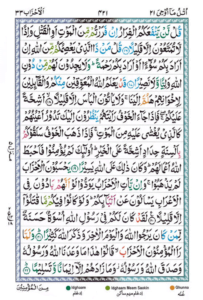 اُتْلُ مَآ اُوْحِیَ ٢١ ٤٢١ الْاَحْزَاب ٣٣
قُلْ لَّنْ یَّنْفَعَكُمُ الْفِرَارُ اِنْ فَرَرْتُمْ مِّنَ الْمَوْتِ اَوِ الْقَتْلِ وَاِذًا
لَّا تُمَتَّعُوْنَ اِلَّا قَلِیْلًا قُلْ مَنْ ذَا الَّذِیْ یَعْصِمُكُمْ مِّنَ اللّٰهِ اِنْ
اَرَادَ بِكُمْ سُوْٓءًا اَوْ اَرَادَ بِكُمْ رَحْمَةً وَلَا یَجِدُوْنَ لَهُمْ مِّنْ دُوْنِ
اللّٰهِ وَلِیًّا وَّلَا نَصِیْرًا قَدْ یَعْلَمُ اللّٰهُ الْمُعَوِّقِیْنَ مِنْكُمْ وَالْقَآئِلِیْنَ
لِاِخْوَانِهِمْ هَلُمَّ اِلَیْنَا وَلَا یَاْتُوْنَ الْبَاْسَ اِلَّا قَلِیْلًا اَشِحَّةً
عَلَیْكُمْ فَاِذَا جَآءَ الْخَوْفُ رَاَیْتَهُمْ یَنْظُرُوْنَ اِلَیْكَ تَدُوْرُ اَعْیُنُهُمْ
كَالَّذِیْ یُغْشٰی عَلَیْهِ مِنَ الْمَوْتِ فَاِذَا ذَهَبَ الْخَوْفُ سَلَقُوْكُمْ
بِاَلْسِنَةٍ حِدَادٍ اَشِحَّةً عَلَی الْخَیْرِ اُولٰٓئِكَ لَمْ یُؤْمِنُوْا فَاَحْبَطَ
اللّٰهُ اَعْمَالَهُمْ وَكَانَ ذٰلِكَ عَلَی اللّٰهِ یَسِیْرًا یَحْسَبُوْنَ الْاَحْزَابَ
لَمْ یَذْهَبُوْا وَاِنْ یَّاْتِ الْاَحْزَابُ یَوَدُّوْا لَوْ اَنَّهُمْ بَادُوْنَ فِی
الْاَعْرَابِ یَسْاَلُوْنَ عَنْ اَنْۢبَآئِكُمْ وَلَوْ كَانُوْا فِیْكُمْ مَّا قٰتَلُوْٓا اِلَّا
قَلِیْلًا لَقَدْ كَانَ لَكُمْ فِیْ رَسُوْلِ اللّٰهِ اُسْوَةٌ حَسَنَةٌ
لِّمَنْ كَانَ یَرْجُوا اللّٰهَ وَالْیَوْمَ الْاٰخِرَ وَذَكَرَ اللّٰهَ كَثِیْرًا وَلَمَّا رَاَ
الْمُؤْمِنُوْنَ الْاَحْزَابَ قَالُوْا هٰذَا مَا وَعَدَنَا اللّٰهُ وَرَسُوْلُهٗ
وَصَدَقَ اللّٰهُ وَرَسُوْلُهٗ وَمَا زَادَهُمْ اِلَّآ اِیْمَانًا وَّتَسْلِیْمًا